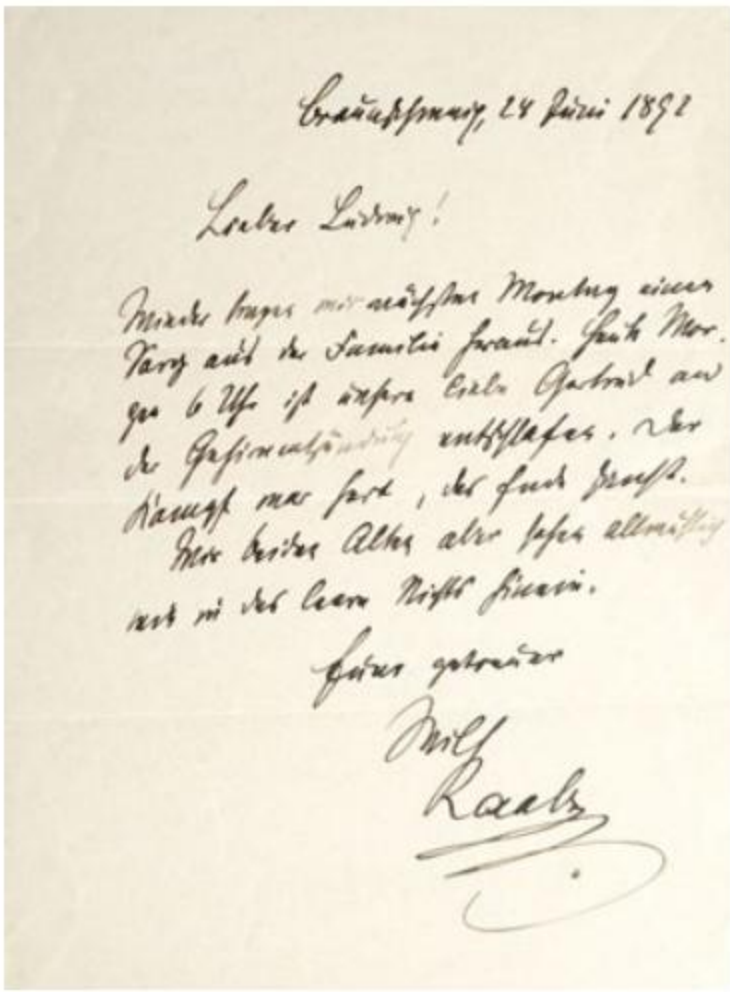 Braunschweig, 24 Juni 1892
Lieber Ludwig!
Wieder tragen wir nächsten Montag einen
Sarg aus der Familie heraus. Heute Mor-
gen 6 Uhr ist unsere liebe Gertrud an
der Gehirnentzündung entschlafen. Der
Kampf war hart, das Ende sanft.
Wir beiden Alten aber sehen
in das leere Nichts hinein.
Euer getreuer
Wilh
Raabe